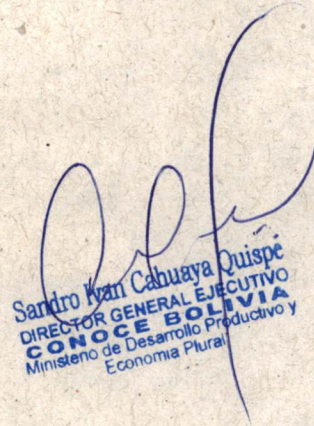 Sandro Ivan Cahuaya Quispe
DIRECTOR GENERAL EJECUTIVO
CONOCE BOLIVIA
Ministerio de Desarrollo Productivo y
Economia Plural